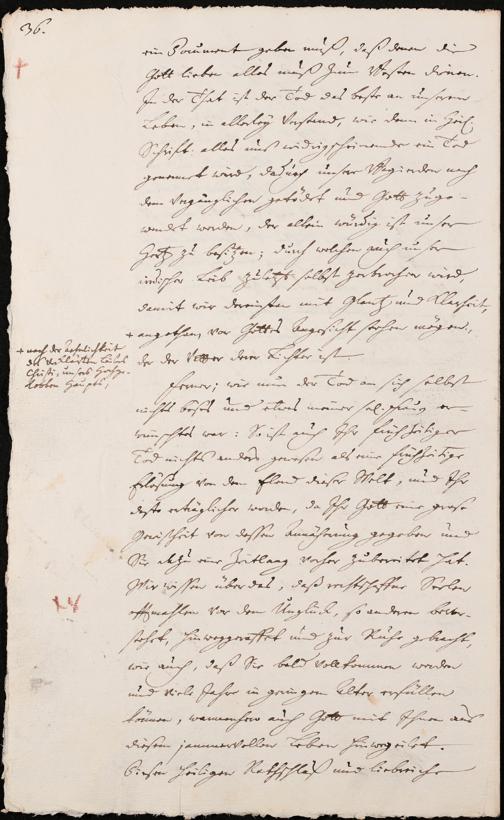 36.
ein Document geben muß, daß denen die
Gott lieben alles muß zum Besten dienen.
In der That ist der Tod das beste an unserm
Leben, in allerley Verstand, wie denn in Heil.
Schrift alles uns widrigscheinende ein Tod
genennet wird, dadurch unsre Begierden nach
dem Vergänglichen getödet und Gott zuge-
wendet werden, der allein würdig ist unser
Hertz zu besitzen; durch welchen auch unser
irdischer Leib zuletzt selbst zerbrochen wird,
damit wir dereinsten mit Glantz und Klarheit,
+ angethan, vor Gottes Angesicht stehen mögen,
der der Vater derer Lichter ist
+ nach der Aehnlichkeit
des verklärten Leibes
Christi, unsers Hochge-
lobten Haupts,
Ferner; wie nun der Tod an sich selbst
nichts böses und etwas erwünschtes war: So ist auch Ihr frühzeitiger
Tod nichts anders gewesen als eine frühzeitige
Erlösung von dem Elend dieser Welt, und Ihr
desto erträglicher worden, da Ihr Gott eine grose
Gewißheit von dessen Annäherung gegeben und
Sie dazu eine Zeitlang vorher zubereitet hat.
Wir wissen über das, daß rechtschaffne Seelen
offtmahlen vor dem Unglück, so anderen bevor-
stehet, hinweggeraffet und zur Ruhe gebracht,
wie auch, daß Sie bald vollkommen werden
und viele Jahre in geringem Alter erfüllen
können, wannenhero auch Gott mit Ihnen aus
diesem jammervollen Leben hinwegeilet.
Diesen heiligen Rathschluß und liebreiche